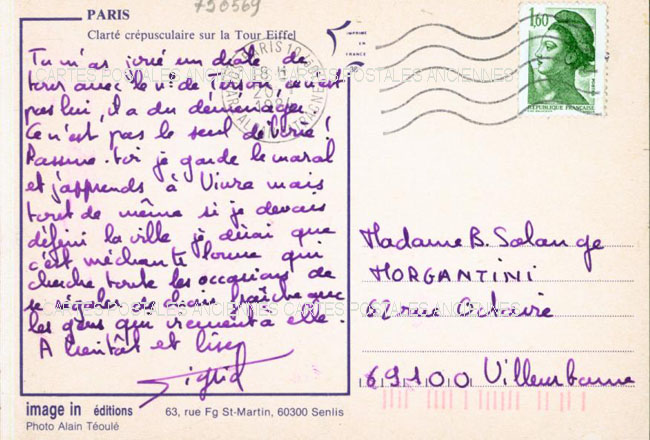 790569
PARIS
Clarté crépusculaire sur la Tour Eiffel
IMPRIMÉ
EN
FRANCE
1,60
RÉPUBLIQUE FRANÇAISE
PARIS 10
CARTES POSTALES ANCIENNES CARTES POSTALES ANCIENNES
Tu m'as joué un drôle de
tour avec le n° de c'est
pas lui, il a du déménager
Ce n'est pas le seul
Rassure-toi je garde le moral
et j'apprends à Vivre mais
tout de même si je devais
définir la ville je dirai que
c'est méchante femme qui
cherche toute les occasions de
se la avec
les gens qui viennent a elle.
A bientôt et bises
Sigrid
Madame B. Solange
MORGANTINI
62 rue Octavie
69100 Villeurbanne
CARTES POSTALES ANCIENNES CARTES POSTALES ANCIENNES
image in éditions
63, rue Fg St-Martin, 60300 Senlis
Photo Alain Téoulé